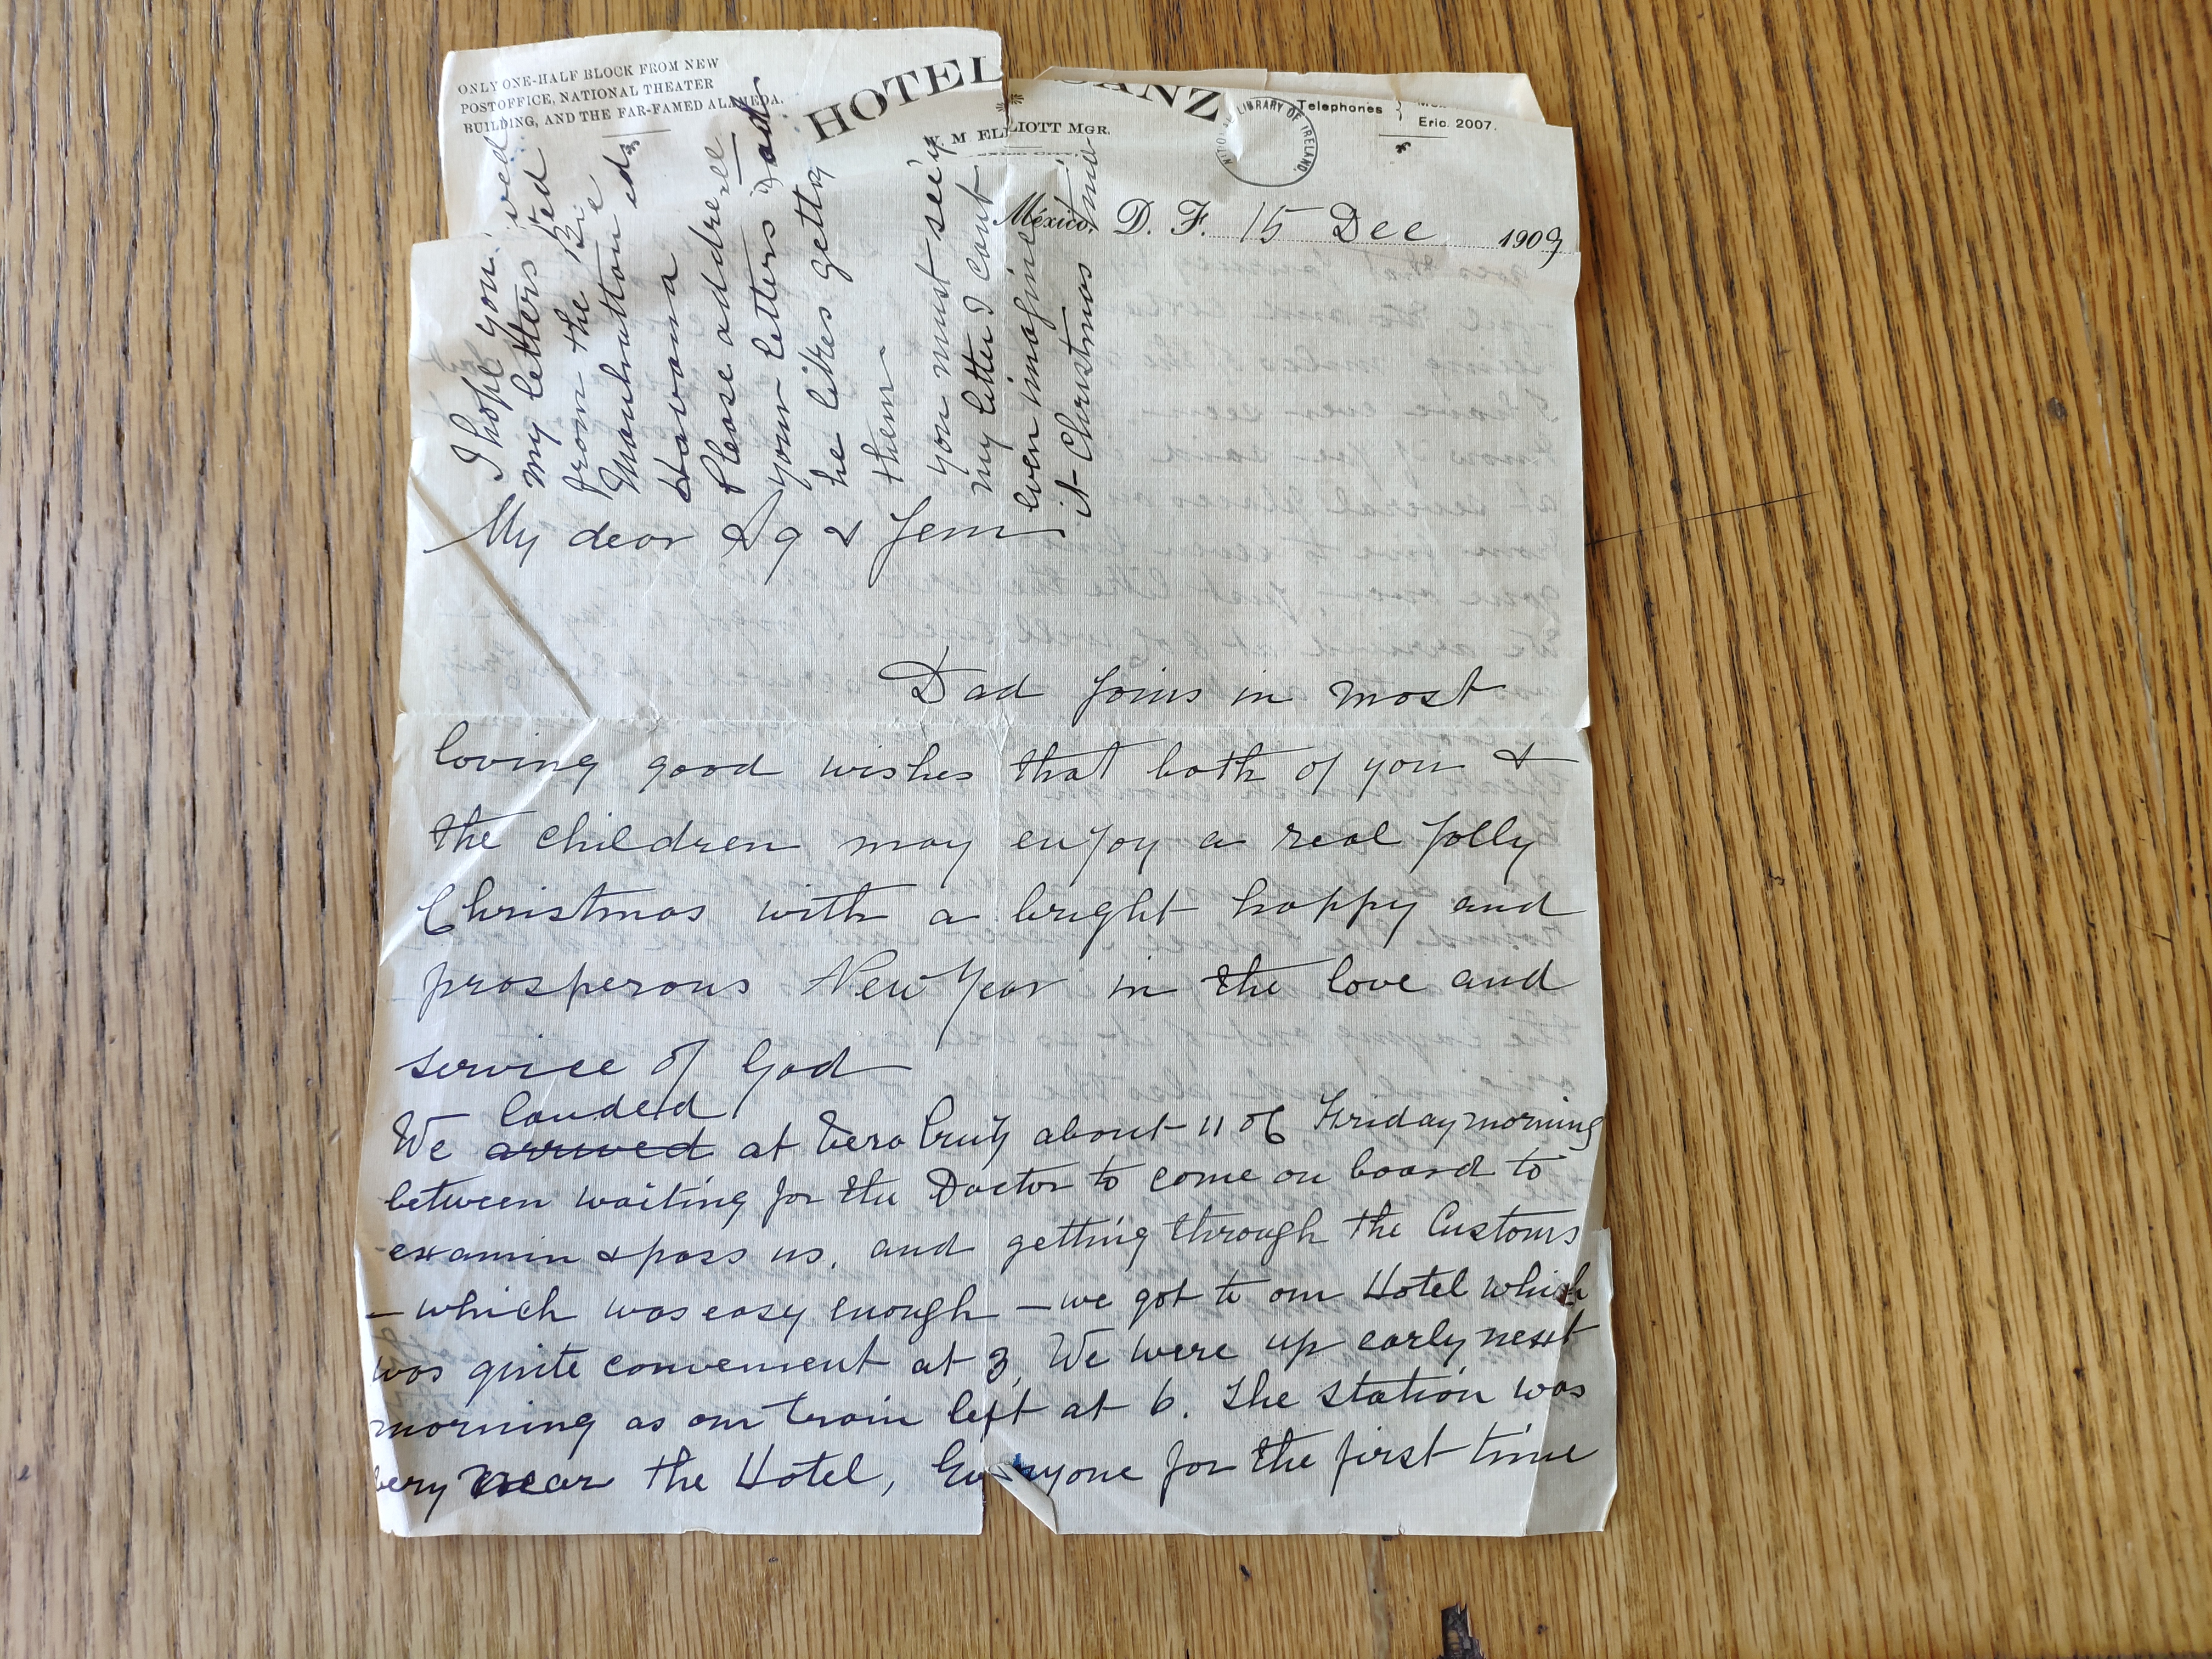 ONLY ONE-HALF BLOCK FROM NEW
POSTOFFICE, NATIONAL THEATER
BUILDING, AND THE FAR-FAMED ALAMEDA.
HOTEL SANZ
M. ELLIOTT MGR.
Telephones
Eric. 2007.
LIBRARY OF IRELAND.
México, D. F. 15 Dec 1909
I hope you
my letters
from the
Manhattan
Havana
Please address
your letters
he likes getting
them
you must see by
my letter I cant
even imagine
it Christmas time
My dear Ag & Jem
Dad joins in most
loving good wishes that both of you &
the children may enjoy a real jolly
Christmas with a bright happy and
prosperous New Year in the love and
service of God
landed
We arrived at Vera Cruz about 11 of Friday morning
between waiting for the Doctor to come on board to
examin & pass us, and getting through the Customs
– which was easy enough – we got to our Hotel which
was quite convenient at 3, We were up early next
morning as our train left at 6. The station was
very near the Hotel, Everyone for the first time